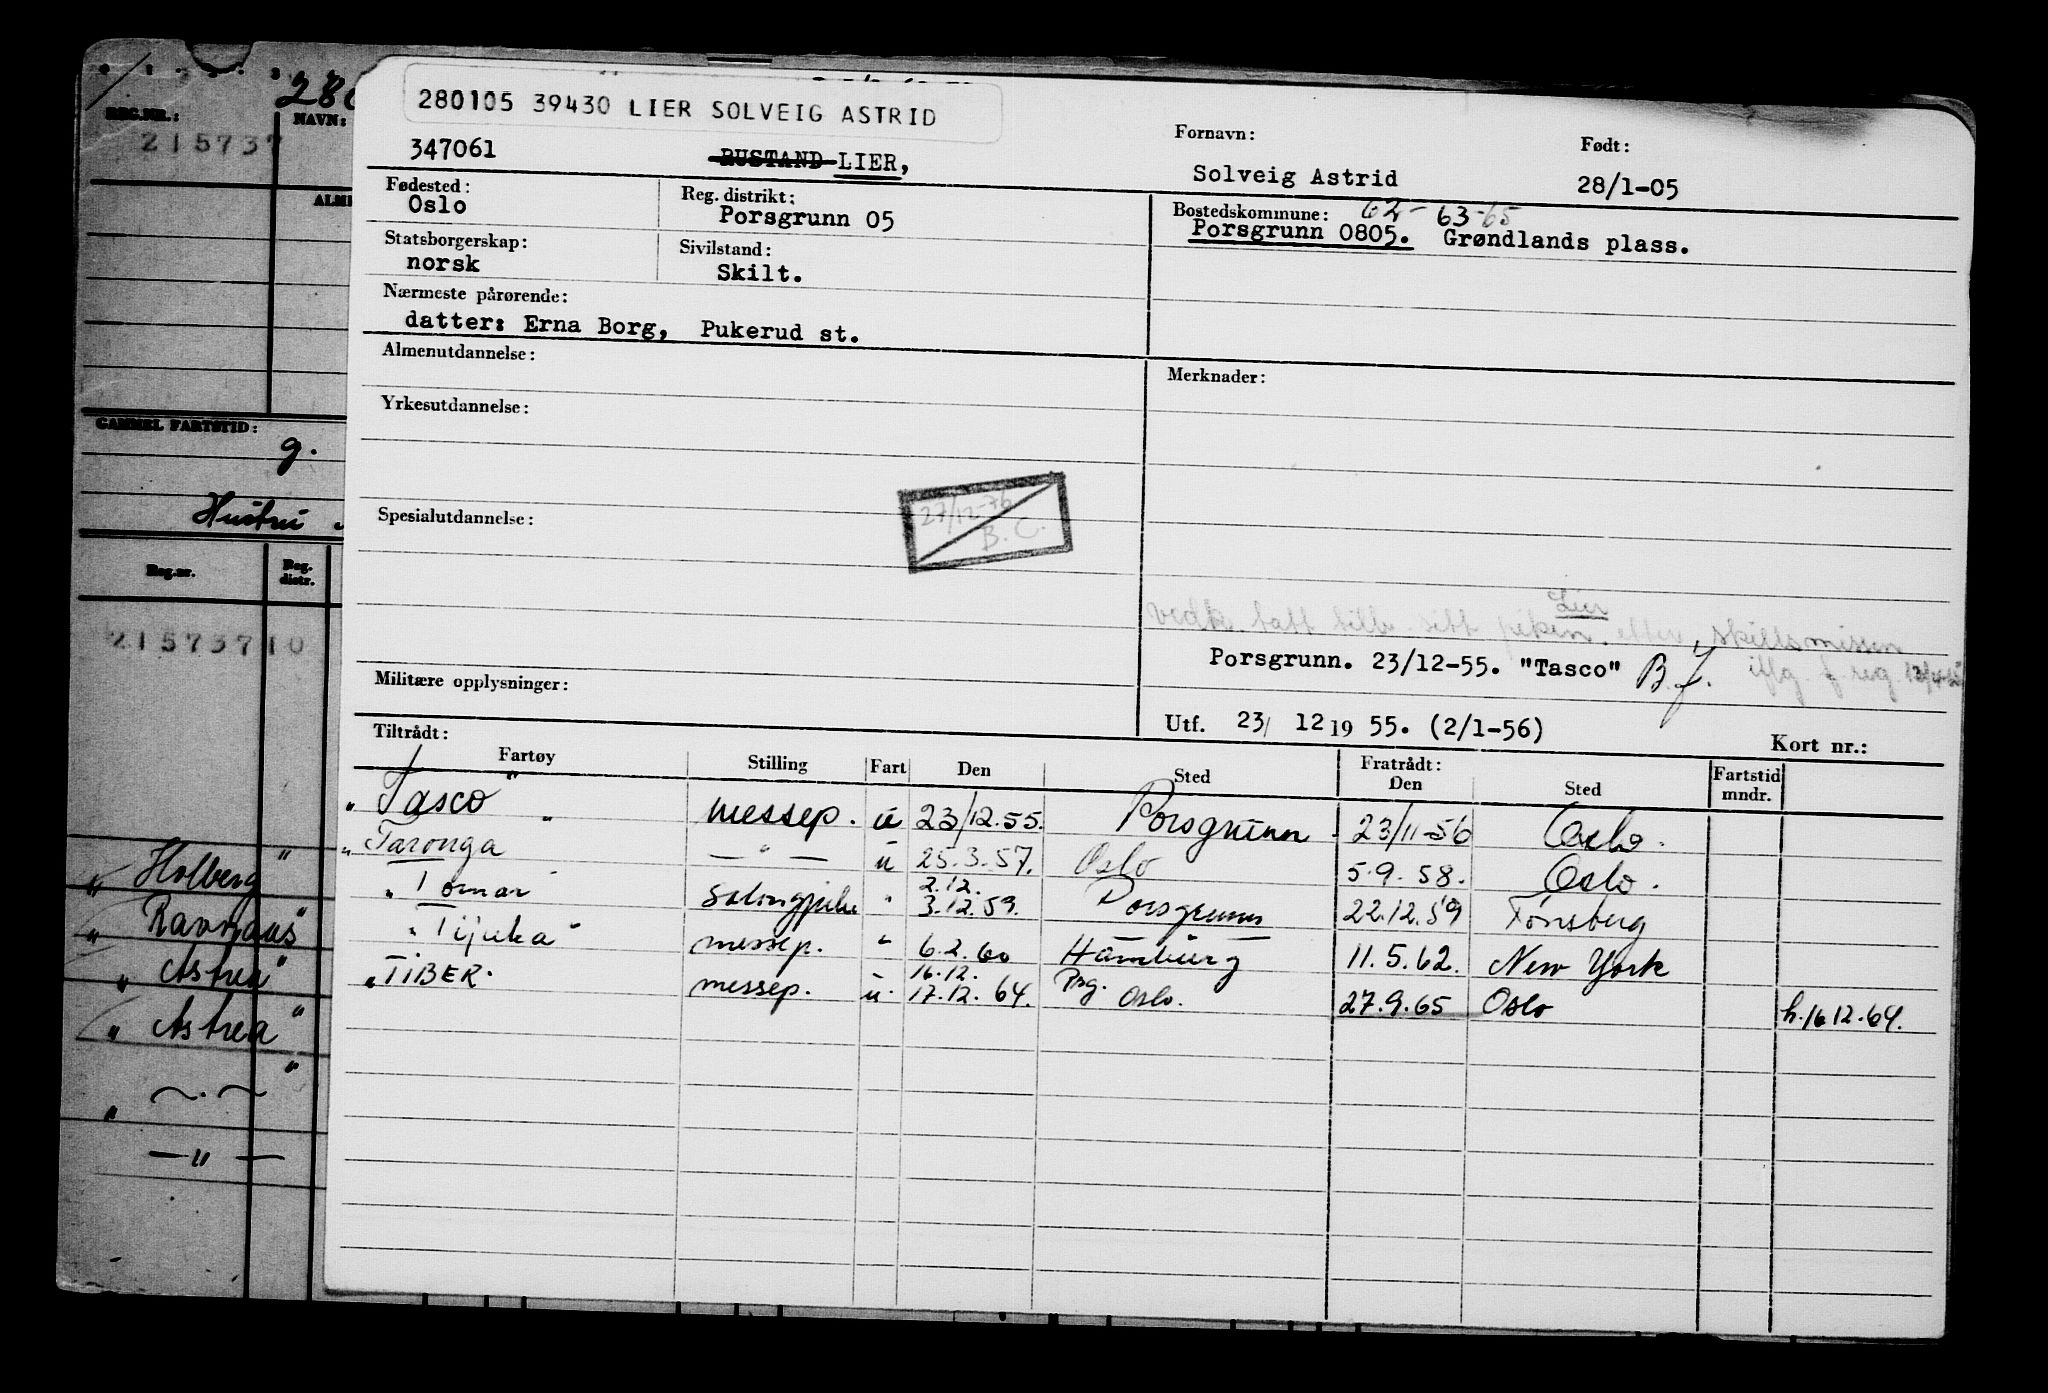 280105 39430 LIER SOLVEIG ASTRID
347061
RUSTAND LIER,
Fornavn:
Solveig Astrid
Født:
28/1-05
Fødested:
Oslo
Reg. distrikt:
Porsgrunn 05
Bostedskommune: 62- 63-65
Porsgrunn 0805. Grøndlands plass.
Statsborgerskap:
norsk
Sivilstand:
Skilt.
Nærmeste pårørende:
datter: Erna Borg, Pukerud st.
Almenutdannelse:
Merknader:
Yrkesutdannelse:
27/12-76
B. C.
Spesialutdannelse:
Lier
vedk. tatt tilb. sitt piken. etter skillsmissen
iflg. f. reg.
Porsgrunn. 23/12-55. "Tasco" B.J.
Militære opplysninger:
Utf. 23/ 12 19 55. (2/1-56)
Kort nr.:
Tiltrådt:
Fartøy Stilling Fart Den Sted
Fratrådt:
Den Sted
Fartstid
mndr.
"Tasco" messep. u 23/12.55. Porsgrunn 23/11-56 Oslo.
"Taronga" —"— u 25.3.57. Oslo 5.9.58. Oslo.
2.12.
"Tomar" salongpike " 3.12.59. Porsgrunn 22.12.59 Tønsberg
"Tijuka" messep. " 6.2.60 Hamburg 11.5.62. New York
16.12. Prsg.
"TIBER. messep. u. 17.12.64. Oslo. 27.9.65 Oslo h.16 12.64.
REG.NR.:
215737
NAVN:
280
ALM
GAMMEL FARTSTID:
g.
Hustru
Reg.nr.
Reg.
distr.
215737 10
"Holberg"
"Astrea"
"Astrea"
" —.— "
—"—